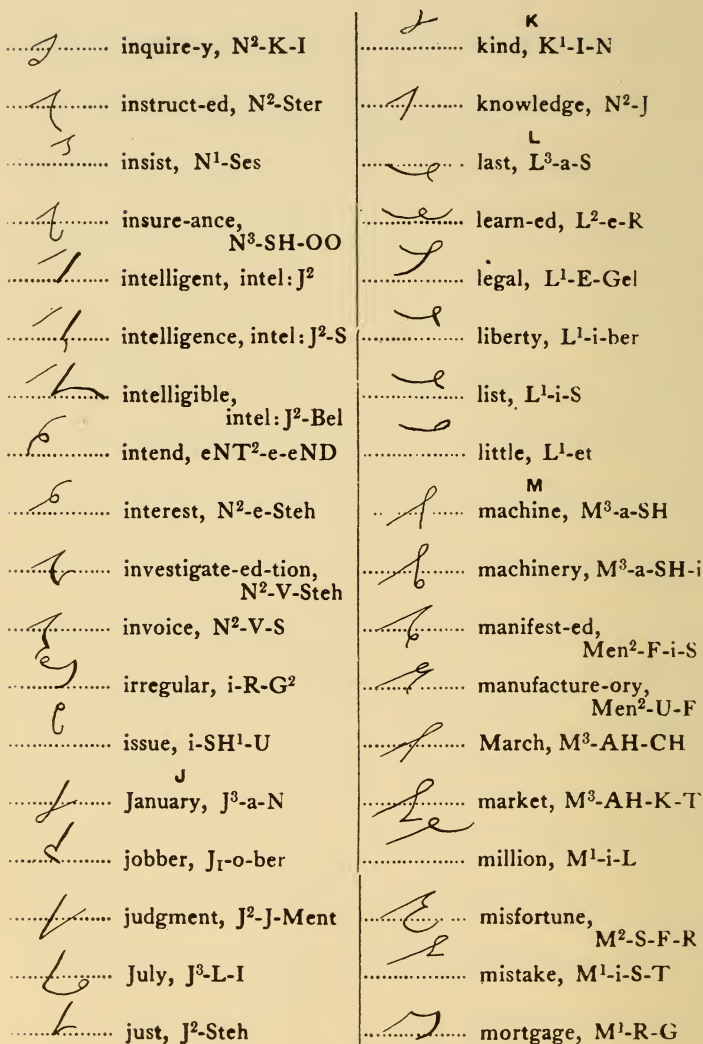 inquire-y, N²-K-I
instruct-ed, N²-Ster
insist, N¹-Ses
insure-ance,
N³-SH-OO
intelligent, intel:J²
intelligence, intel:J²-S
intelligible,
intel:J²-Bel
intend, eNT²-e-eND
interest, N²-e-Steh
investigate-ed-tion,
N²-V-Steh
invoice, N²-V-S
irregular, i-R-G²
issue, i-SH¹-U
J
January, J³-a-N
jobber, J₁-o-ber
judgment, J²-J-Ment
July, J³-L-I
just, J²-Steh
K
kind, K¹-I-N
knowledge, N²-J
L
last, L³-a-S
learn-ed, L²-e-R
legal, L¹-E-Gel
liberty, L¹-i-ber
list, L¹-i-S
little, L¹-et
M
machine, M³-a-SH
machinery, M³-a-SH-i
manifest-ed,
Men²-F-i-S
manufacture-ory,
Men²-U-F
March, M³-AH-CH
market, M³-AH-K-T
million, M¹-i-L
misfortune,
M²-S-F-R
mistake, M¹-i-S-T
mortgage, M¹-R-G